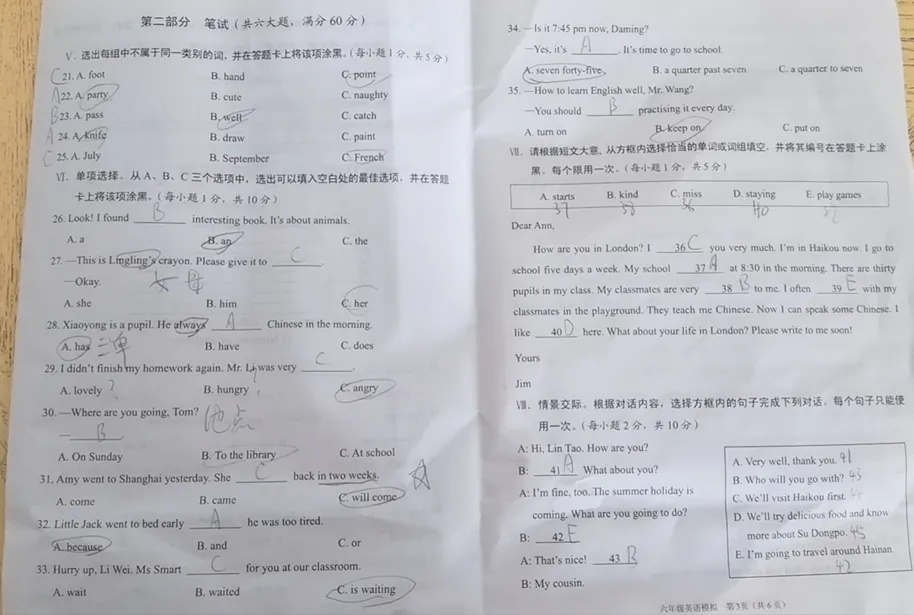 第二部分 笔试(共六大题,满分 60 分)
Ⅴ. 选出每组中不属于同一类别的词,并在答题卡上将该项涂黑。(每小题 1 分,共 5 分)
C 21. A. foot B. hand C. point
A 22. A. party B. cute C. naughty
B 23. A. pass B. well C. catch
A 24. A. knife B. draw C. paint
C 25. A. July B. September C. French
Ⅵ. 单项选择。从 A、B、C 三个选项中,选出可以填入空白处的最佳选项,并在答题
卡上将该项涂黑。(每小题 1 分,共 10 分)
26. Look! I found B interesting book. It's about animals.
A. a B. an C. the
27. —This is Lingling's crayon. Please give it to C .
—Okay. 女 母
A. she B. him C. her
28. Xiaoyong is a pupil. He always A Chinese in the morning.
A. has 三单 B. have C. does
29. I didn't finish my homework again. Mr. Li was very C .
A. lovely ? B. hungry ? C. angry
30. —Where are you going, Tom? 地点
— B .
A. On Sunday B. To the library C. At school
31. Amy went to Shanghai yesterday. She C back in two weeks.
A. come B. came C. will come
32. Little Jack went to bed early A he was too tired.
A. because B. and C. or
33. Hurry up, Li Wei. Ms Smart C for you at our classroom.
A. wait B. waited C. is waiting
34. —Is it 7:45 pm now, Daming?
—Yes, it's A . It's time to go to school.
A. seven forty-five B. a quarter past seven C. a quarter to seven
35. —How to learn English well, Mr. Wang?
—You should B practising it every day.
A. turn on B. keep on C. put on
Ⅶ. 请根据短文大意,从方框内选择恰当的单词或词组填空,并将其编号在答题卡上涂
黑。每个限用一次。(每小题 1 分,共 5 分)
A. starts B. kind C. miss D. staying E. play games
37 38 36 40 39
Dear Ann,
How are you in London? I 36 C you very much. I'm in Haikou now. I go to
school five days a week. My school 37 A at 8:30 in the morning. There are thirty
pupils in my class. My classmates are very 38 B to me. I often 39 E with my
classmates in the playground. They teach me Chinese. Now I can speak some Chinese. I
like 40 D here. What about your life in London? Please write to me soon!
Yours
Jim
Ⅷ. 情景交际。根据对话内容,选择方框内的句子完成下列对话。每个句子只能使
用一次。(每小题 2 分,共 10 分)
A: Hi, Lin Tao. How are you?
B: 41 A What about you?
A: I'm fine, too. The summer holiday is
coming. What are you going to do?
B: 42 E
A: That's nice! 43 B
B: My cousin.
A. Very well, thank you. 41
B. Who will you go with? 43
C. We'll visit Haikou first. 44
D. We'll try delicious food and know
more about Su Dongpo. 45
E. I'm going to travel around Hainan.
42
六年级英语模拟 第3页(共6页)